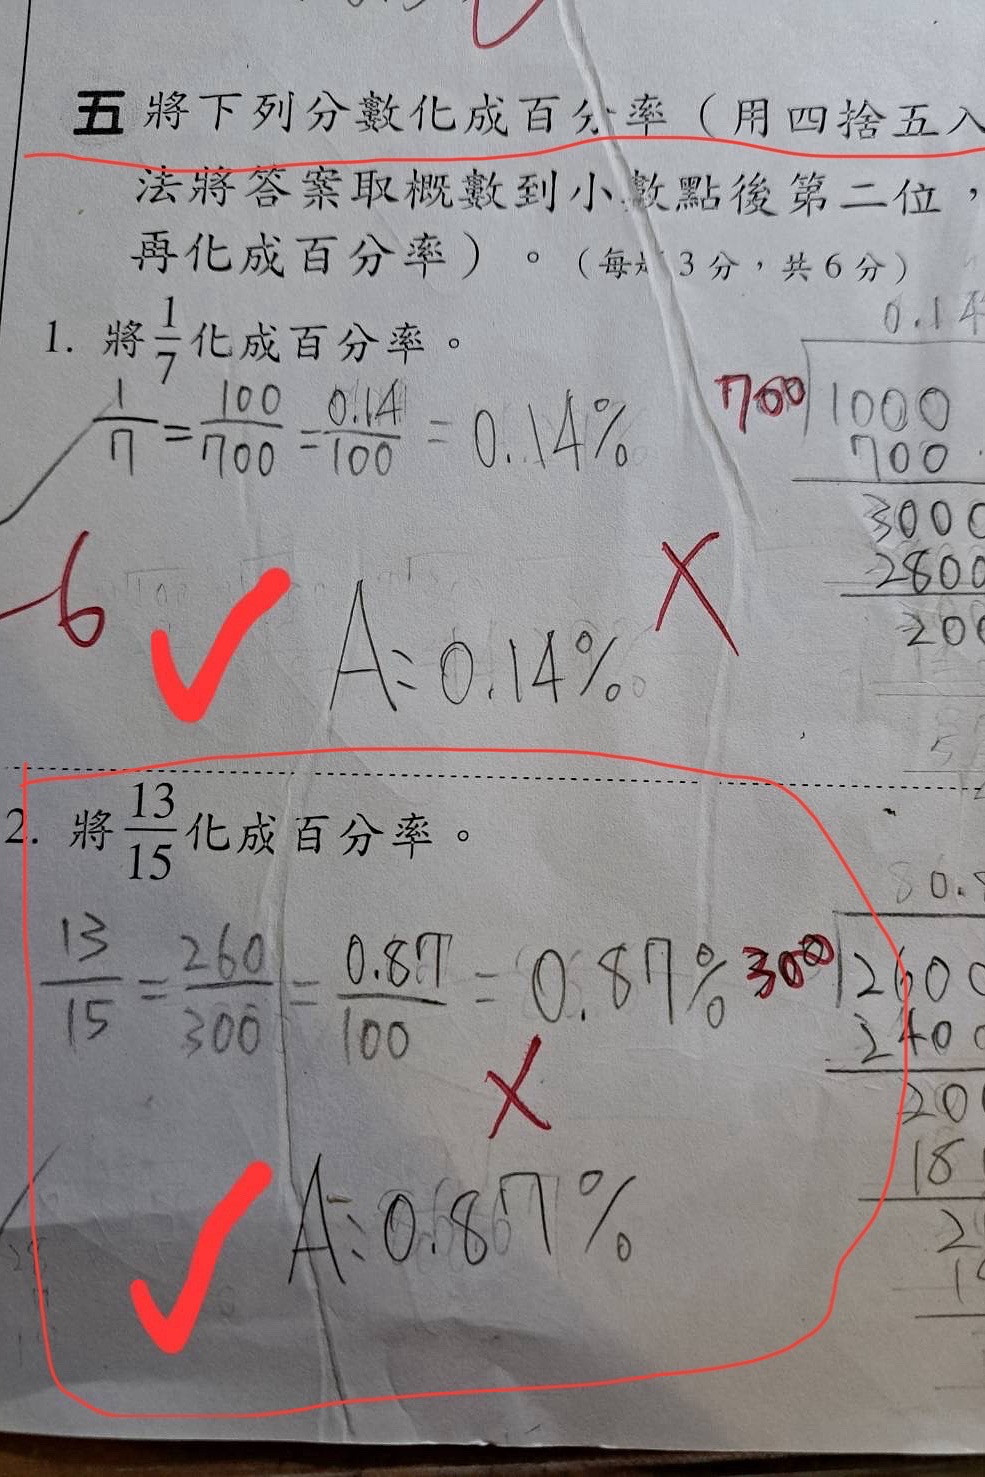 五 將下列分數化成百分率（用四捨五入
法將答案取概數到小數點後第二位，
再化成百分率）。（每題3分，共6分）
1. 將1/7化成百分率。
1/7 = 100/700 = 0.14/100 = 0.14%
0.14
700 1000
700
3000
2800
200
-6
A：0.14%
2. 將13/15化成百分率。
13/15 = 260/300 = 0.87/100 = 0.87%
80.8
300 2600
2400
200
18
2
1
A：0.87%